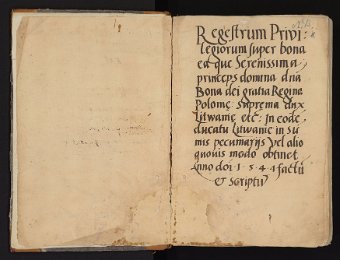 Regestrum Privi
legiorum super bona
ea que Serenissima
princeps domina dna
Bona dei gratia Regina
Polonie suprema dux
Litwanie etc: In eode
ducatu Litwanie in su
mis pecuniarijs Vel alio
quouis modo obtinet
Anno doi 1544 factu
et scriptu